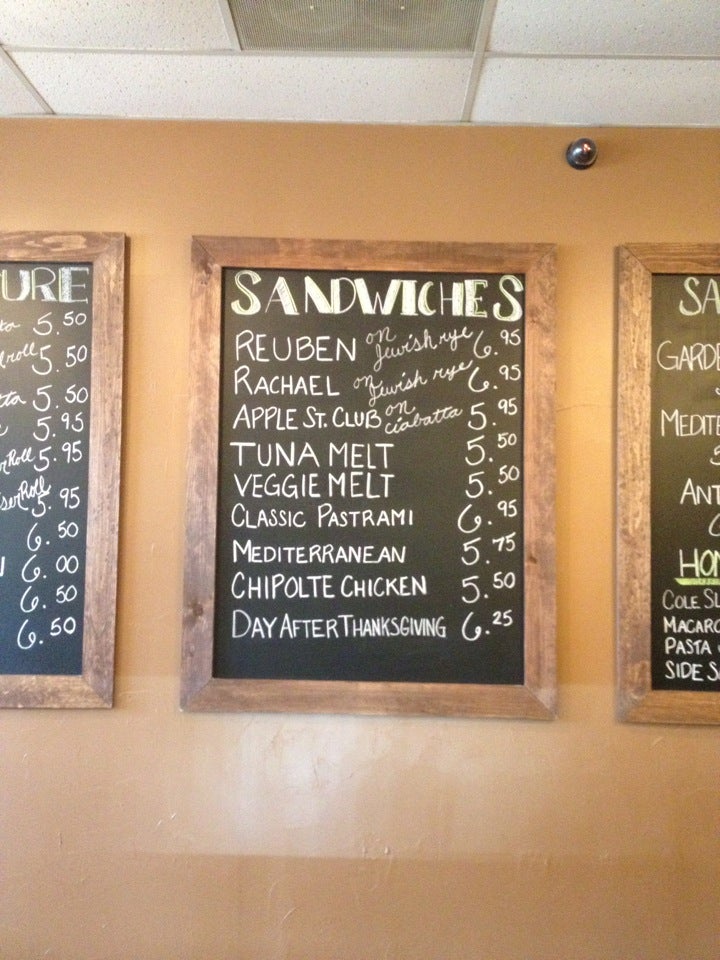 URE
5.50
roll 5.50
5.50
5.95
Roll 5.95
Roll 5.95
6.50
6.00
6.50
6.50
SANDWICHES
REUBEN on Jewish rye 6.95
RACHAEL on Jewish rye 6.95
APPLE ST. CLUB on ciabatta 5.95
TUNA MELT 5.50
VEGGIE MELT 5.50
CLASSIC PASTRAMI 6.95
MEDITERRANEAN 5.75
CHIPOLTE CHICKEN 5.50
DAY AFTER THANKSGIVING 6.25
SA
GARDE
MEDITE
5
ANT
6
HOM
COLE SL
MACARO
PASTA
SIDE S